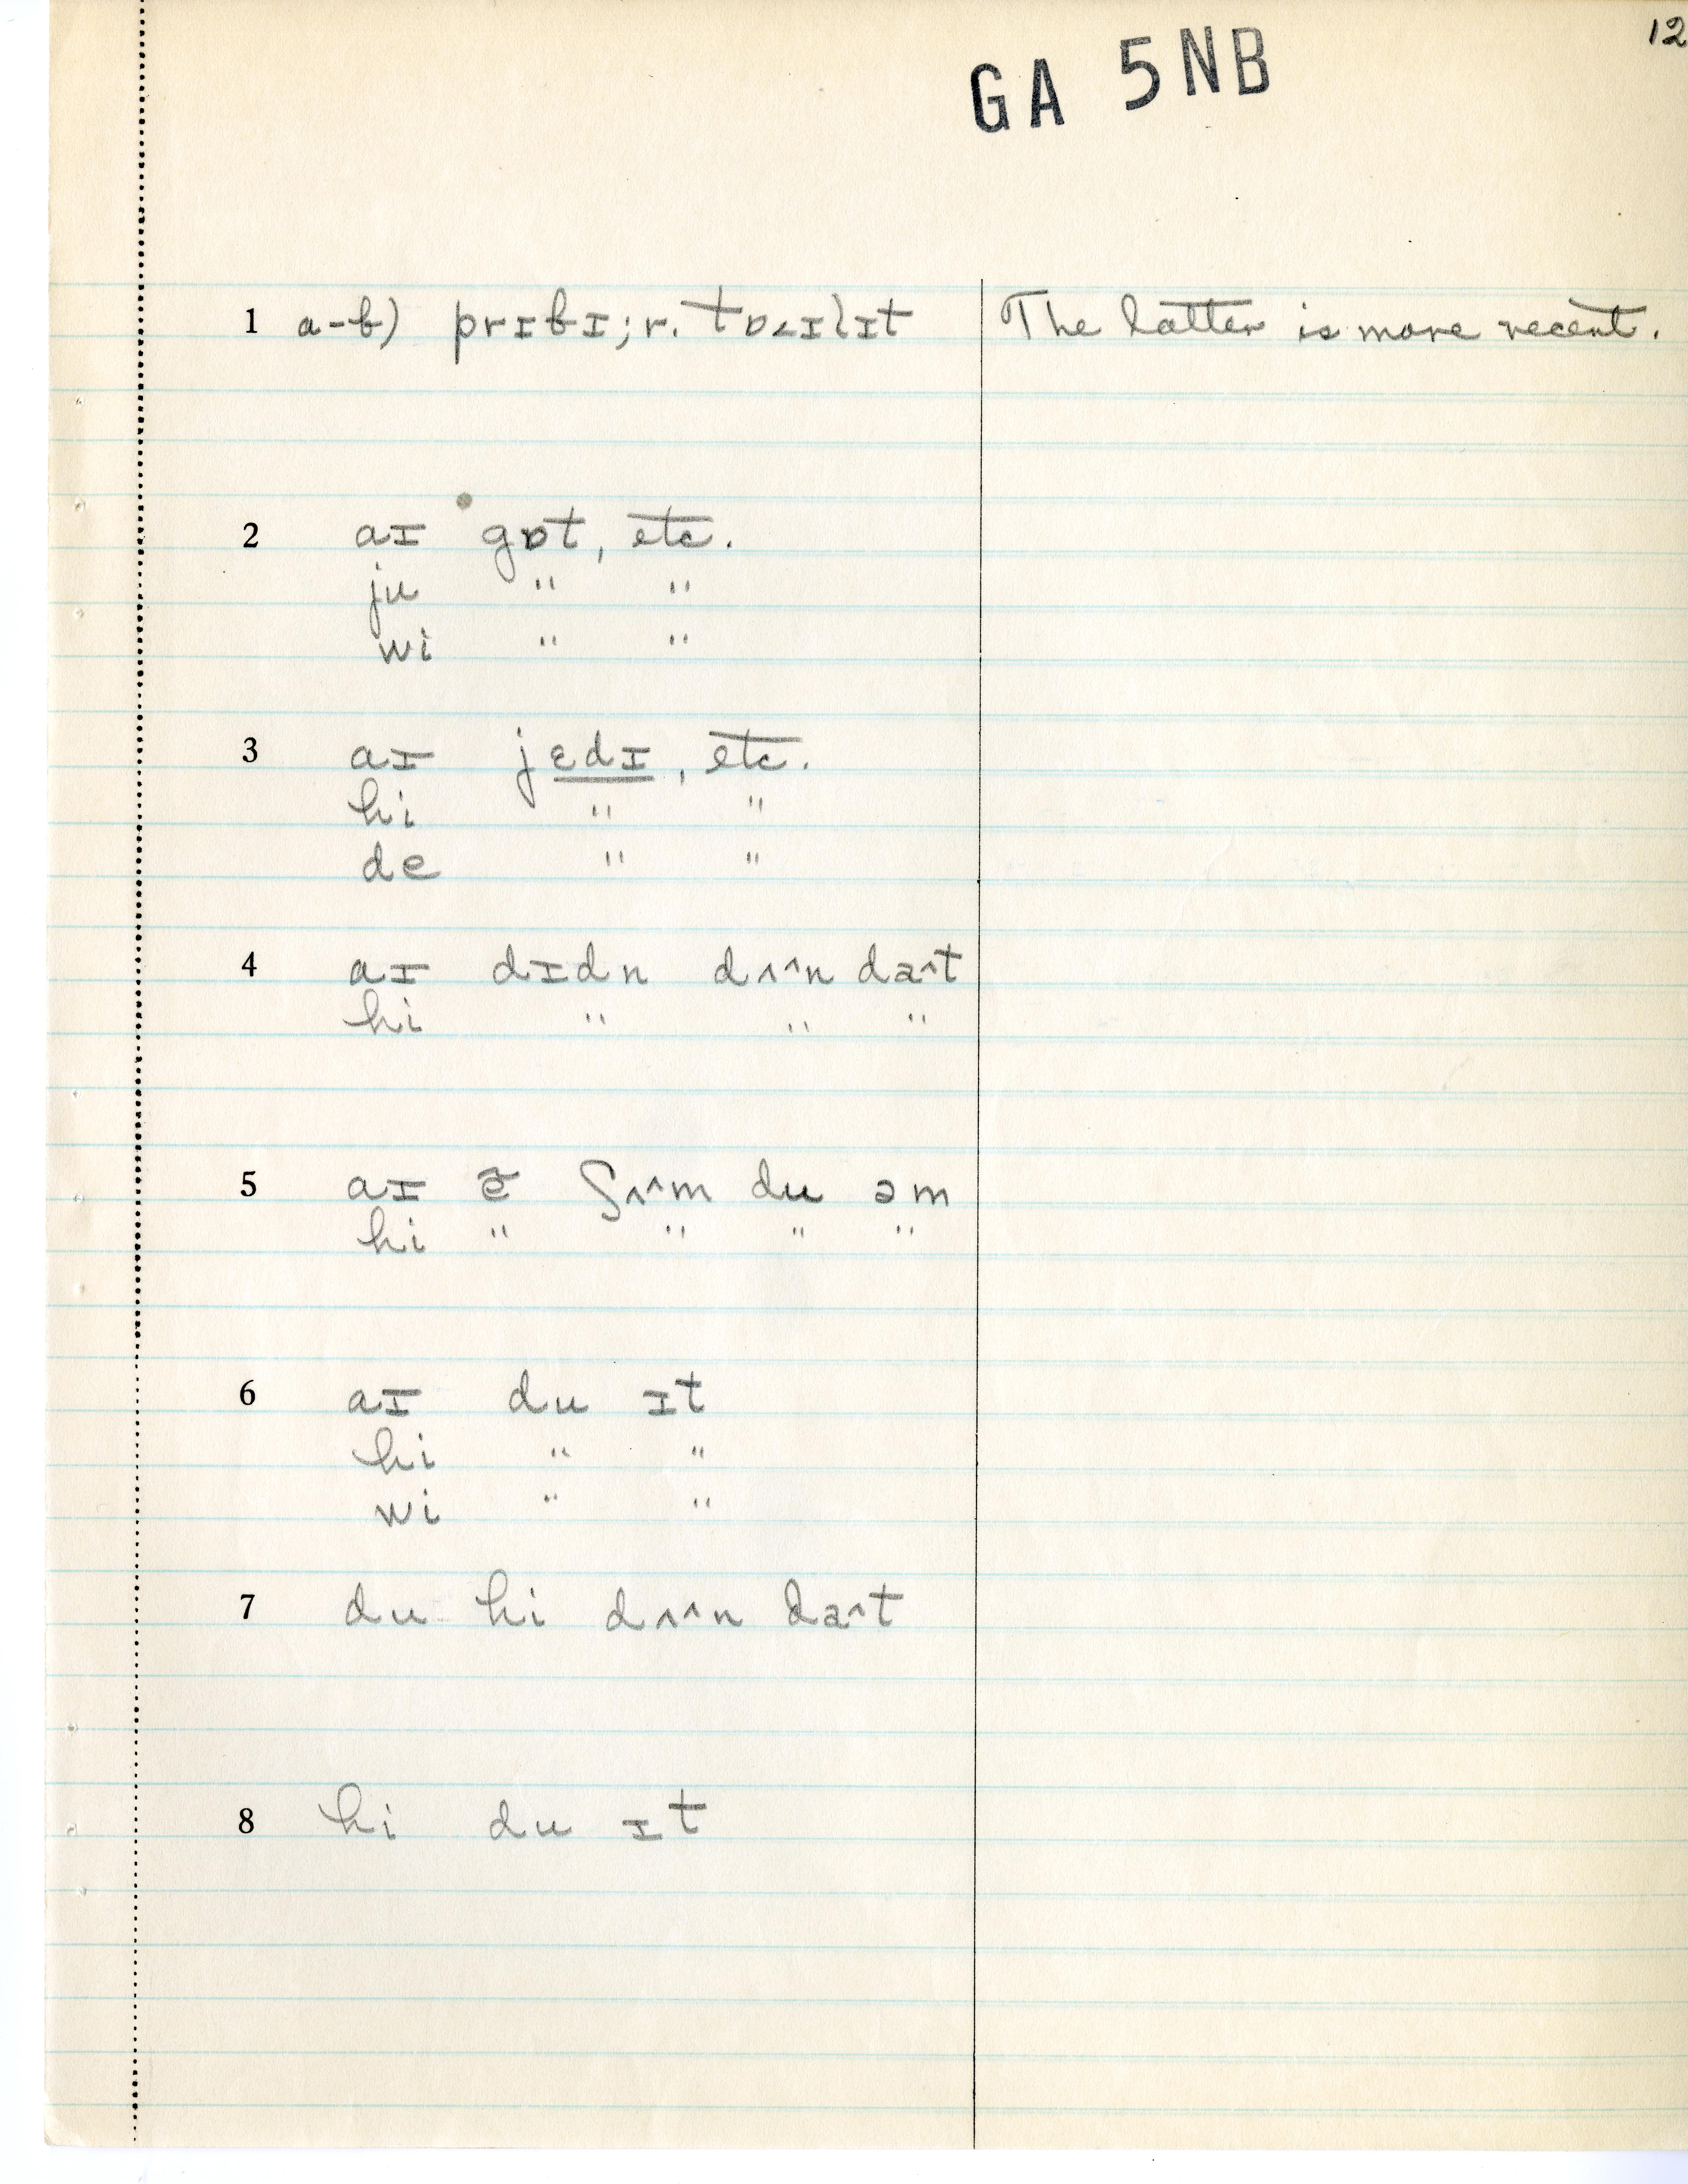 12
GA 5NB
1 a-b) prɪbɪ; r. tɒ<ɪlɪt The latter is more recent.
2 aɪ gɒt, etc.
ju " "
wi " "
3 aɪ jɛdɪ, etc.
hi " "
de " "
4 aɪ dɪdn dʌ^n da^t
hi " " "
5 aɪ ʃʌ^m du əm
hi " " " "
6 aɪ du ɪt
hi " "
wi " "
7 du hi dʌ^n da^t
8 hi du ɪt